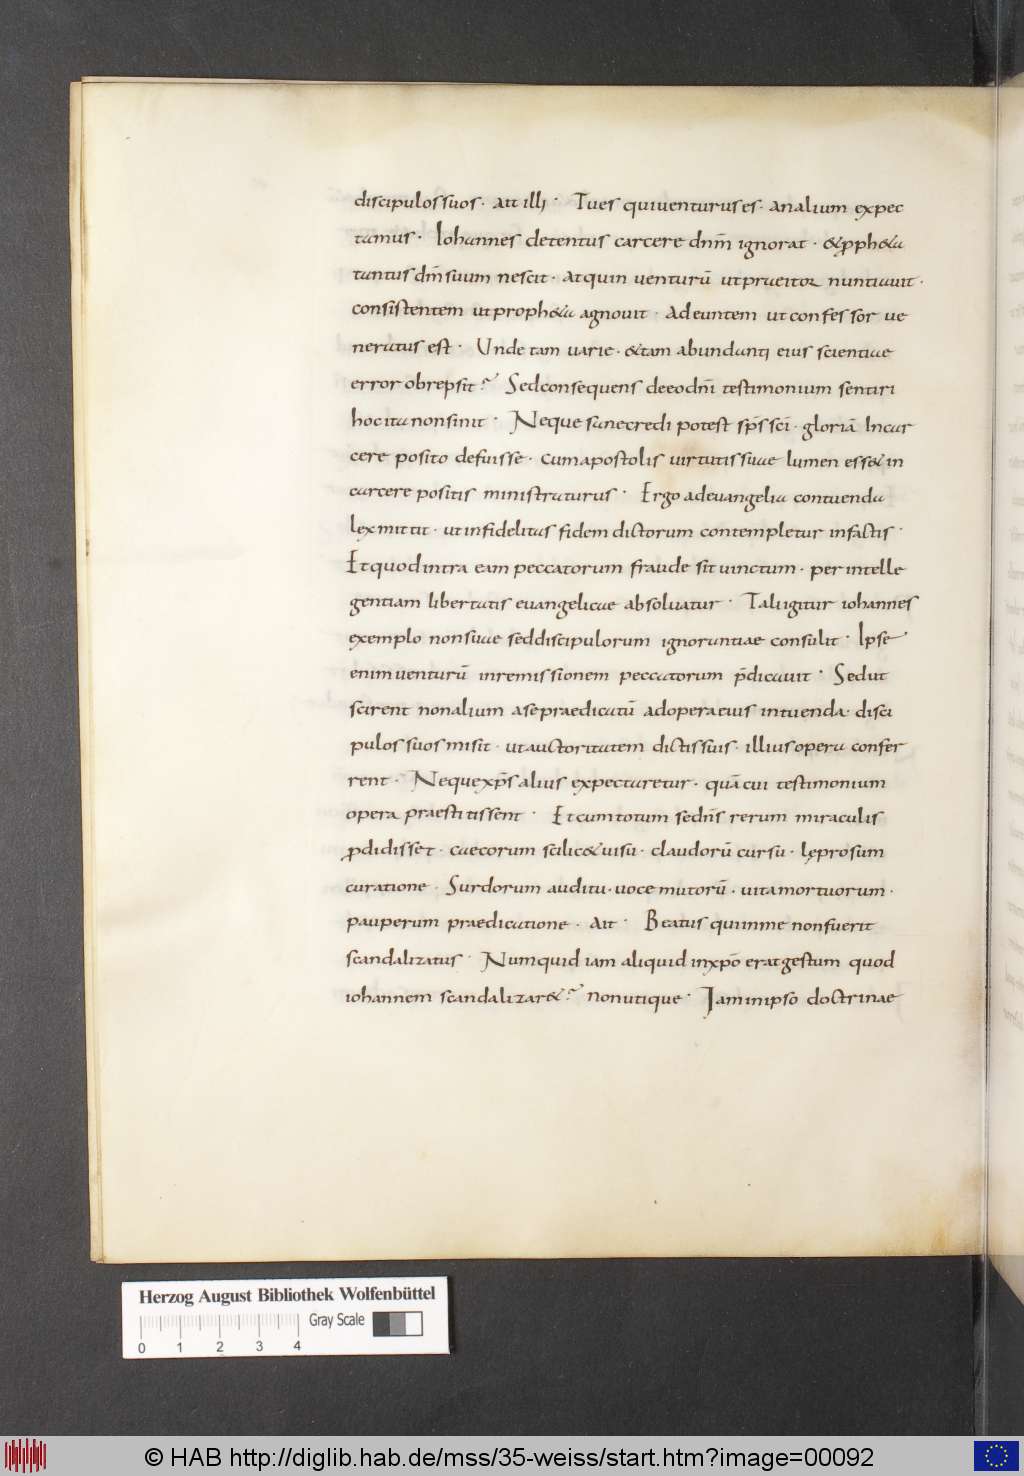 discipulos suos · ait illi · Tu es qui venturus es · an alium expec
tamus · Iohannes detentus carcere dnm̄ ignorat · & ꝓph&a
tantus dm̄ suum nescit · atquin uenturū ut praeitor nuntiauit ·
consistentem ut proph&a agnouit · adeuntem ut confessor ue
neratus est · Unde tam uarie · & tam abundanti eius scientiae
error obrepsit? Sed consequens de eo dnī testimonium sentiri
hoc ita non sinit · Neque sane credi potest sp̄s scī · gloriā In car
cere posito defuisse · cum apostolis uirtutis suae lumen ess& in
carcere positis ministraturus · Ergo ad euangelia contuenda
lex mittit · ut infidelitas fidem dictorum contempletur in factis ·
Et quod intra eam peccatorum fraude sit uinctum · per intelle
gentiam libertatis euangelicae absoluatur · Tali igitur iohannes
exemplo non suae sed discipulorum ignorantiae consulit · Ipse
enim uenturū in remissionem peccatorum p̄dicauit · Sed ut
scirent non alium a se praedicatū ad opera eius intuenda · disci
pulos suos misit · ut auctoritatem dictis suis · illius opera confer
rent · Neque xp̄s alius expectaretur · quā cui testimonium
opera praestitissent · Et cum totum se dn̄s rerum miraculis
ꝓdidisset · caecorum scilic& uisu · claudorū cursu · lęprosum
curatione · Surdorum auditu · uoce mutorū · uita mortuorum ·
pauperum praedicatione · ait · Beatus qui in me non fuerit
scandalizatus · Numquid iam aliquid in xpō erat gestum quod
iohannem scandalizar&? non utique · Iam in ipso doctrinae
Herzog August Bibliothek Wolfenbüttel
Gray Scale
0 1 2 3 4
© HAB http://diglib.hab.de/mss/35-weiss/start.htm?image=00092